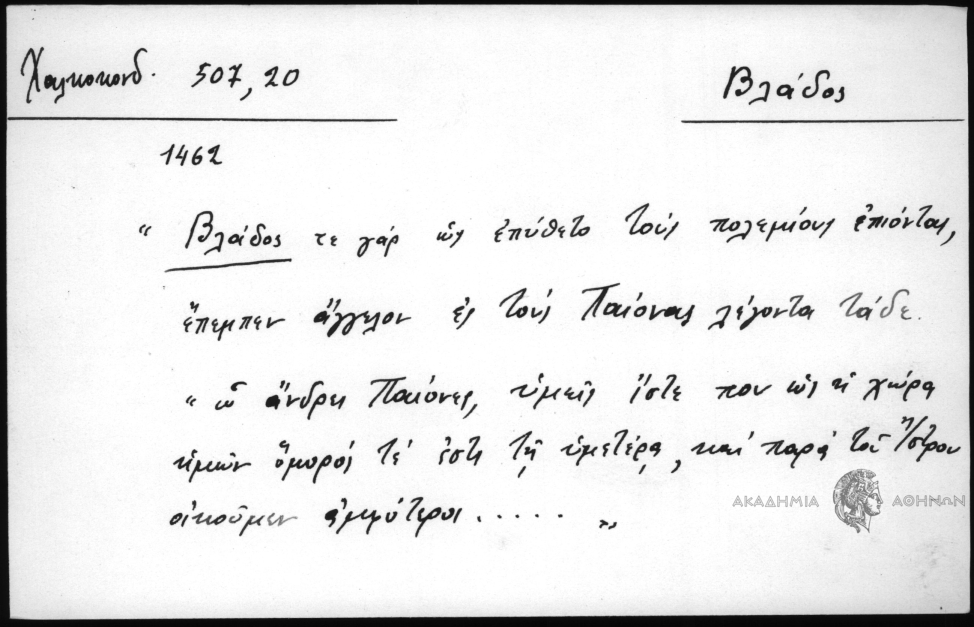 Χαλκοκονδ. 507,20
Βλάδος
1462
“ Βλάδος τε γάρ ὡς ἐπύθετο τούς πολεμίους ἐπιόντας,
ἔπεμπεν ἄγγελον ἐς τούς Παίονας λέγοντα τάδε.
“ ὦ ἄνδρες Παίονες, ὑμεῖς ἴστε που ὡς ἡ χώρα
ἡμῶν ὅμορός τέ ἐστι τῇ ὑμετέρᾳ, καί παρά τόν Ἴστρον
οἰκοῦμεν ἀμφότεροι ..... „
ΑΚΑΔΗΜΙΑ ΑΘΗΝΩΝ